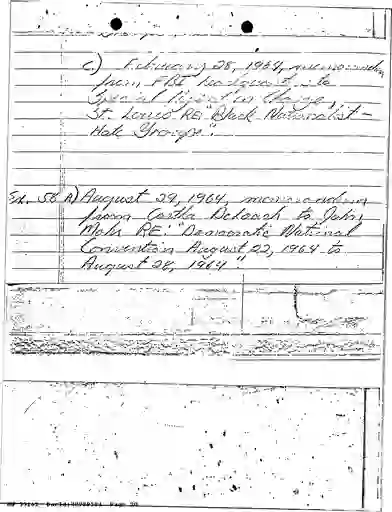 c.) February 28, 1964, memorandum
from FBI headquarters to
Special Agent in Charge,
St. Louis RE: "Black Nationalist -
Hate Groups".
Ex. 58 A) August 29, 1964, memorandum
from Cartha DeLoach to John
Mohr RE: "Democratic National
Convention August 22, 1964 to
August 28, 1964".
Page